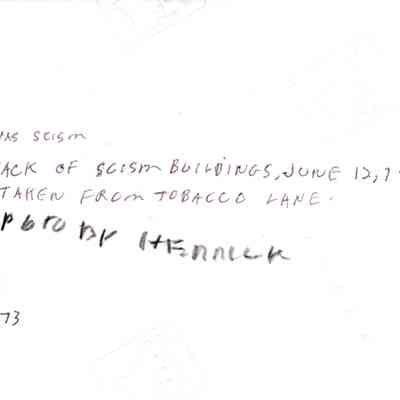 SCISM
ACK OF SCISM BUILDINGS, JUNE 12, 7
TAKEN FROM TOBACCO LANE.
PHOTO BY HERRICK
73